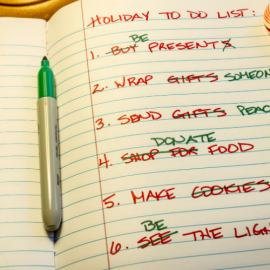 HOLIDAY TO DO LIST:
BE
1. BUY PRESENTS
2. WRAP GIFTS SOMEON
3. SEND GIFTS PEAC
DONATE
4. SHOP FOR FOOD
5. MAKE COOKIES
BE
6. SEE THE LIGH